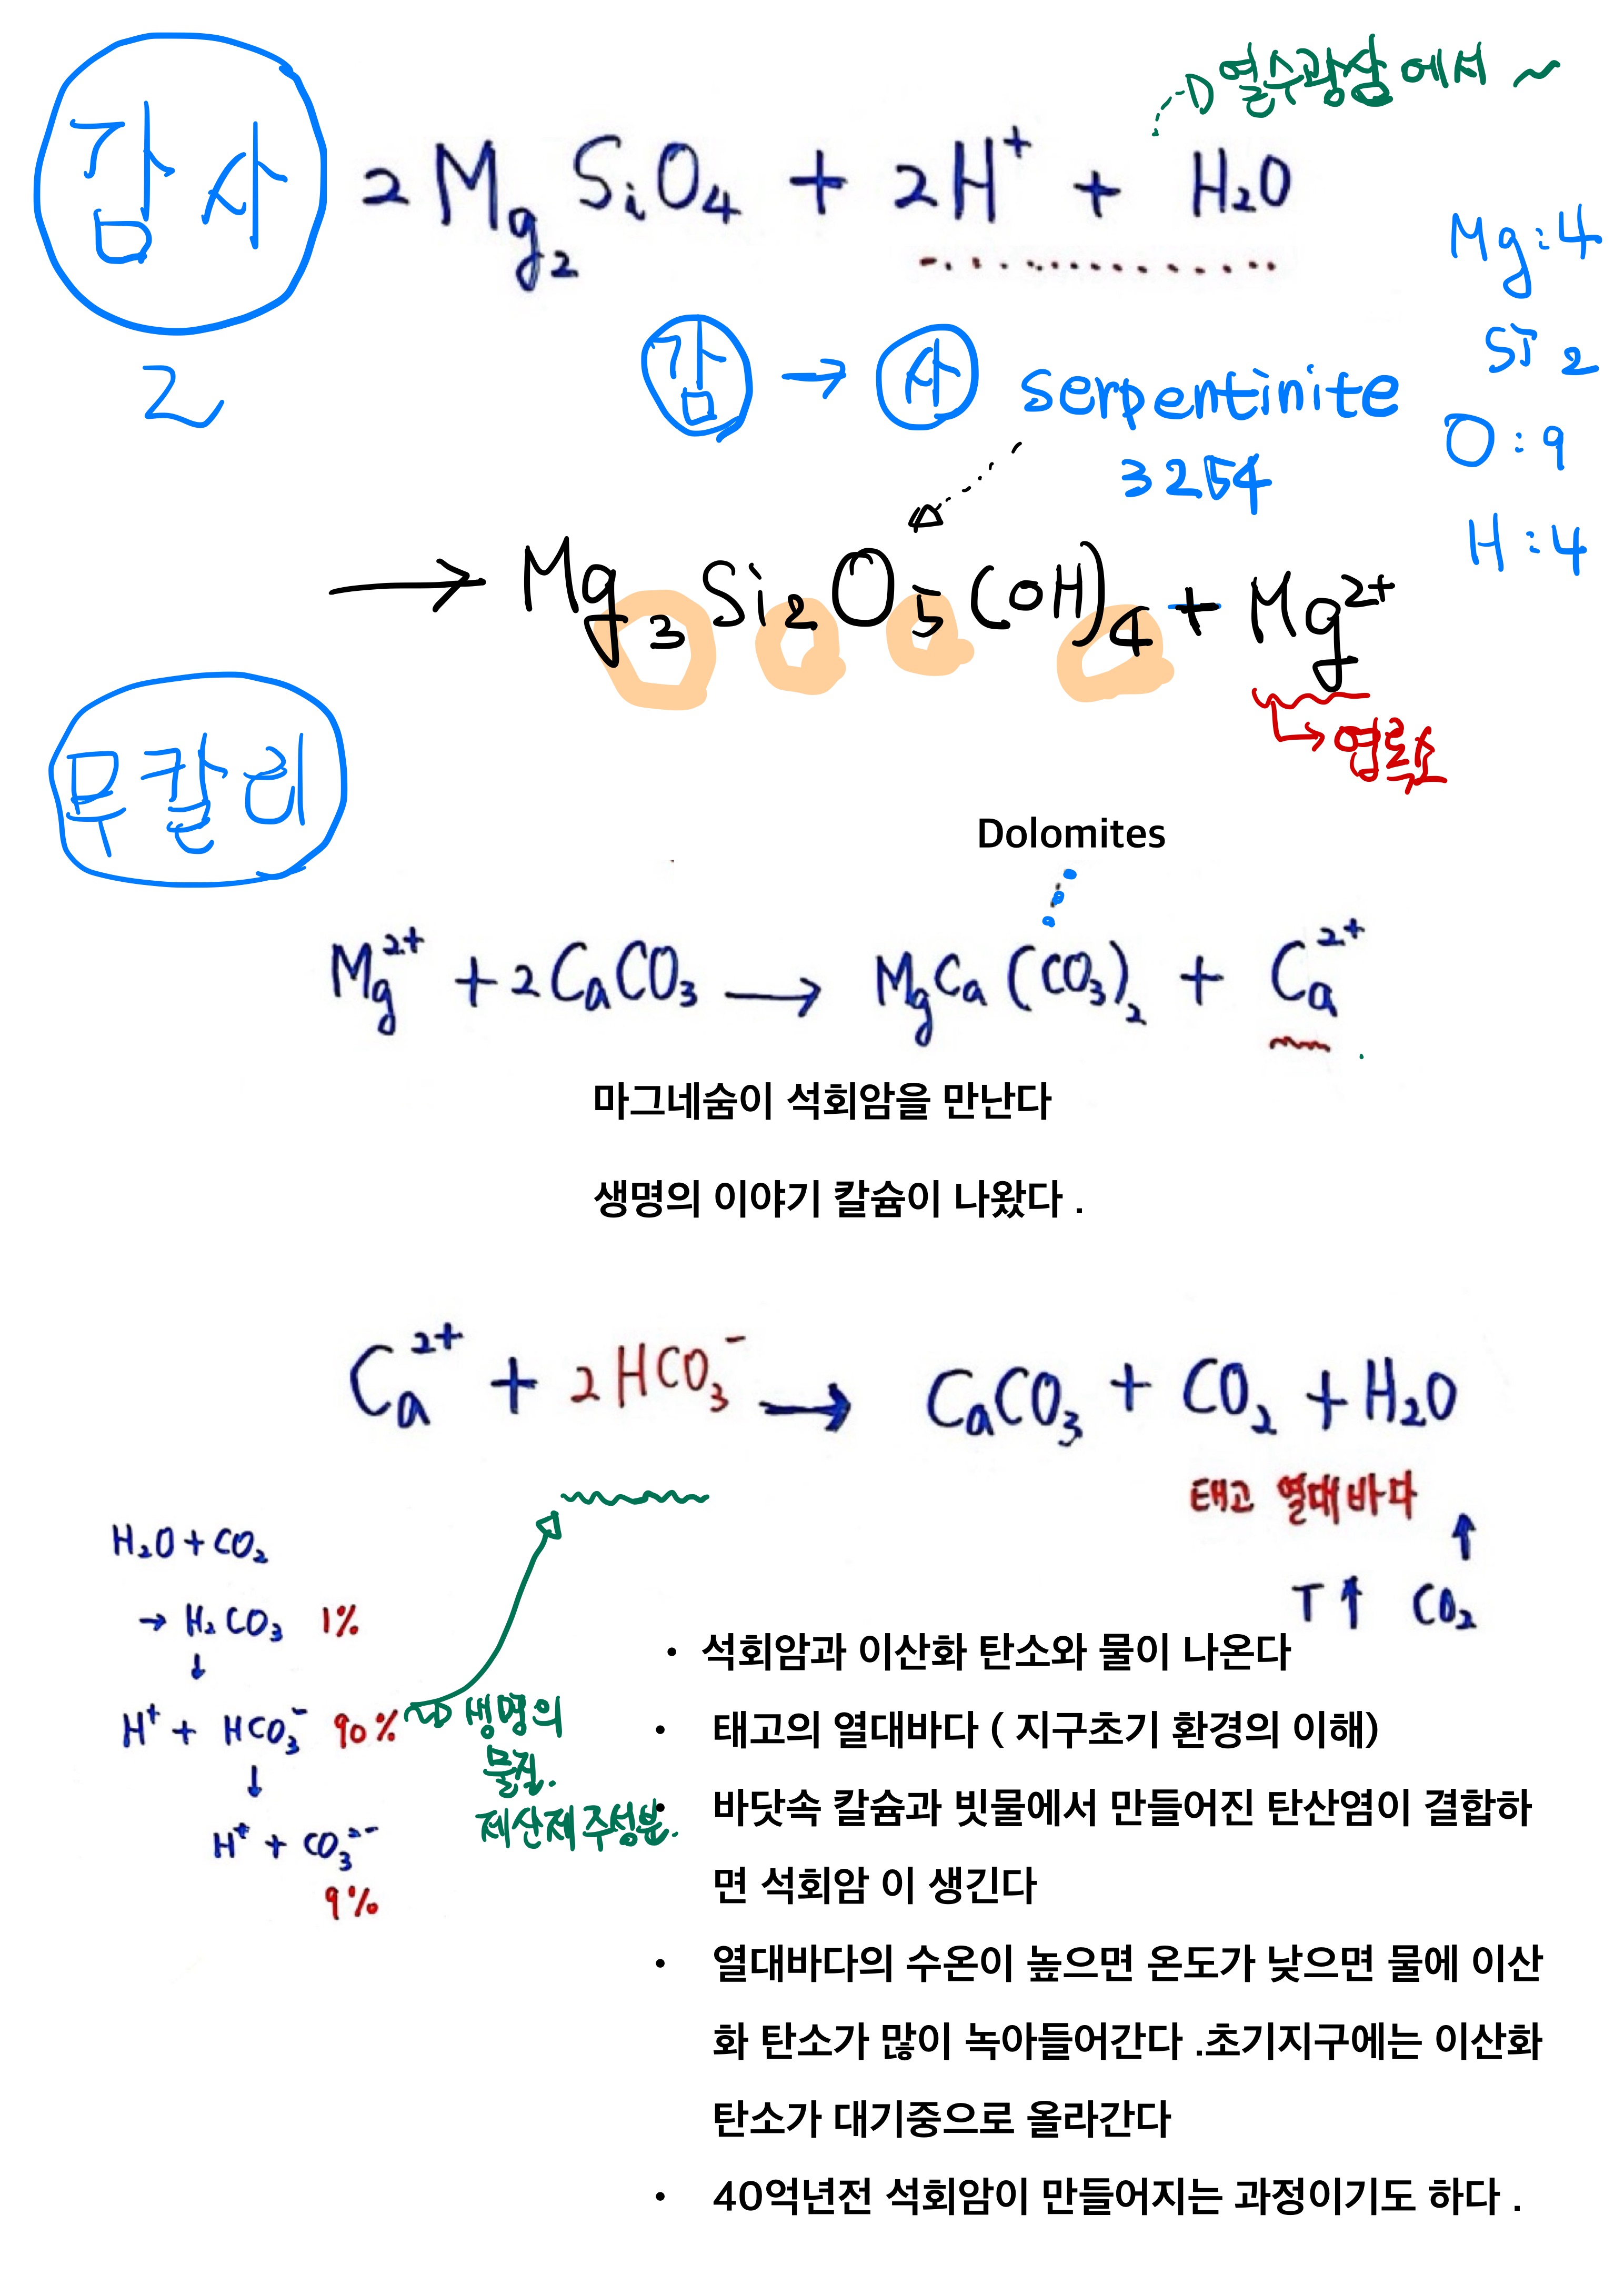 감사
2
열수광상에서 ~
2Mg₂SiO₄ + 2H⁺ + H₂O
Mg:4
Si 2
O:9
H:4
감 → 사 serpentinite
3254
→ Mg₃Si₂O₅(OH)₄ + Mg²⁺
→ 엽록소
무칼리
Dolomites
Mg²⁺ + 2CaCO₃ → MgCa(CO₃)₂ + Ca²⁺
마그네슘이 석회암을 만난다
생명의 이야기 칼슘이 나왔다 .
Ca²⁺ + 2HCO₃⁻ → CaCO₃ + CO₂ + H₂O
태고 열대바다
↑
T↑ CO₂
H₂O + CO₂
→ H₂CO₃ 1%
↓
H⁺ + HCO₃⁻ 90%
↓
H⁺ + CO₃²⁻
9%
생명의
물질.
제산제 주성분.
• 석회암과 이산화 탄소와 물이 나온다
• 태고의 열대바다 ( 지구초기 환경의 이해)
• 바닷속 칼슘과 빗물에서 만들어진 탄산염이 결합하
면 석회암 이 생긴다
• 열대바다의 수온이 높으면 온도가 낮으면 물에 이산
화 탄소가 많이 녹아들어간다 .초기지구에는 이산화
탄소가 대기중으로 올라간다
• 40억년전 석회암이 만들어지는 과정이기도 하다 .